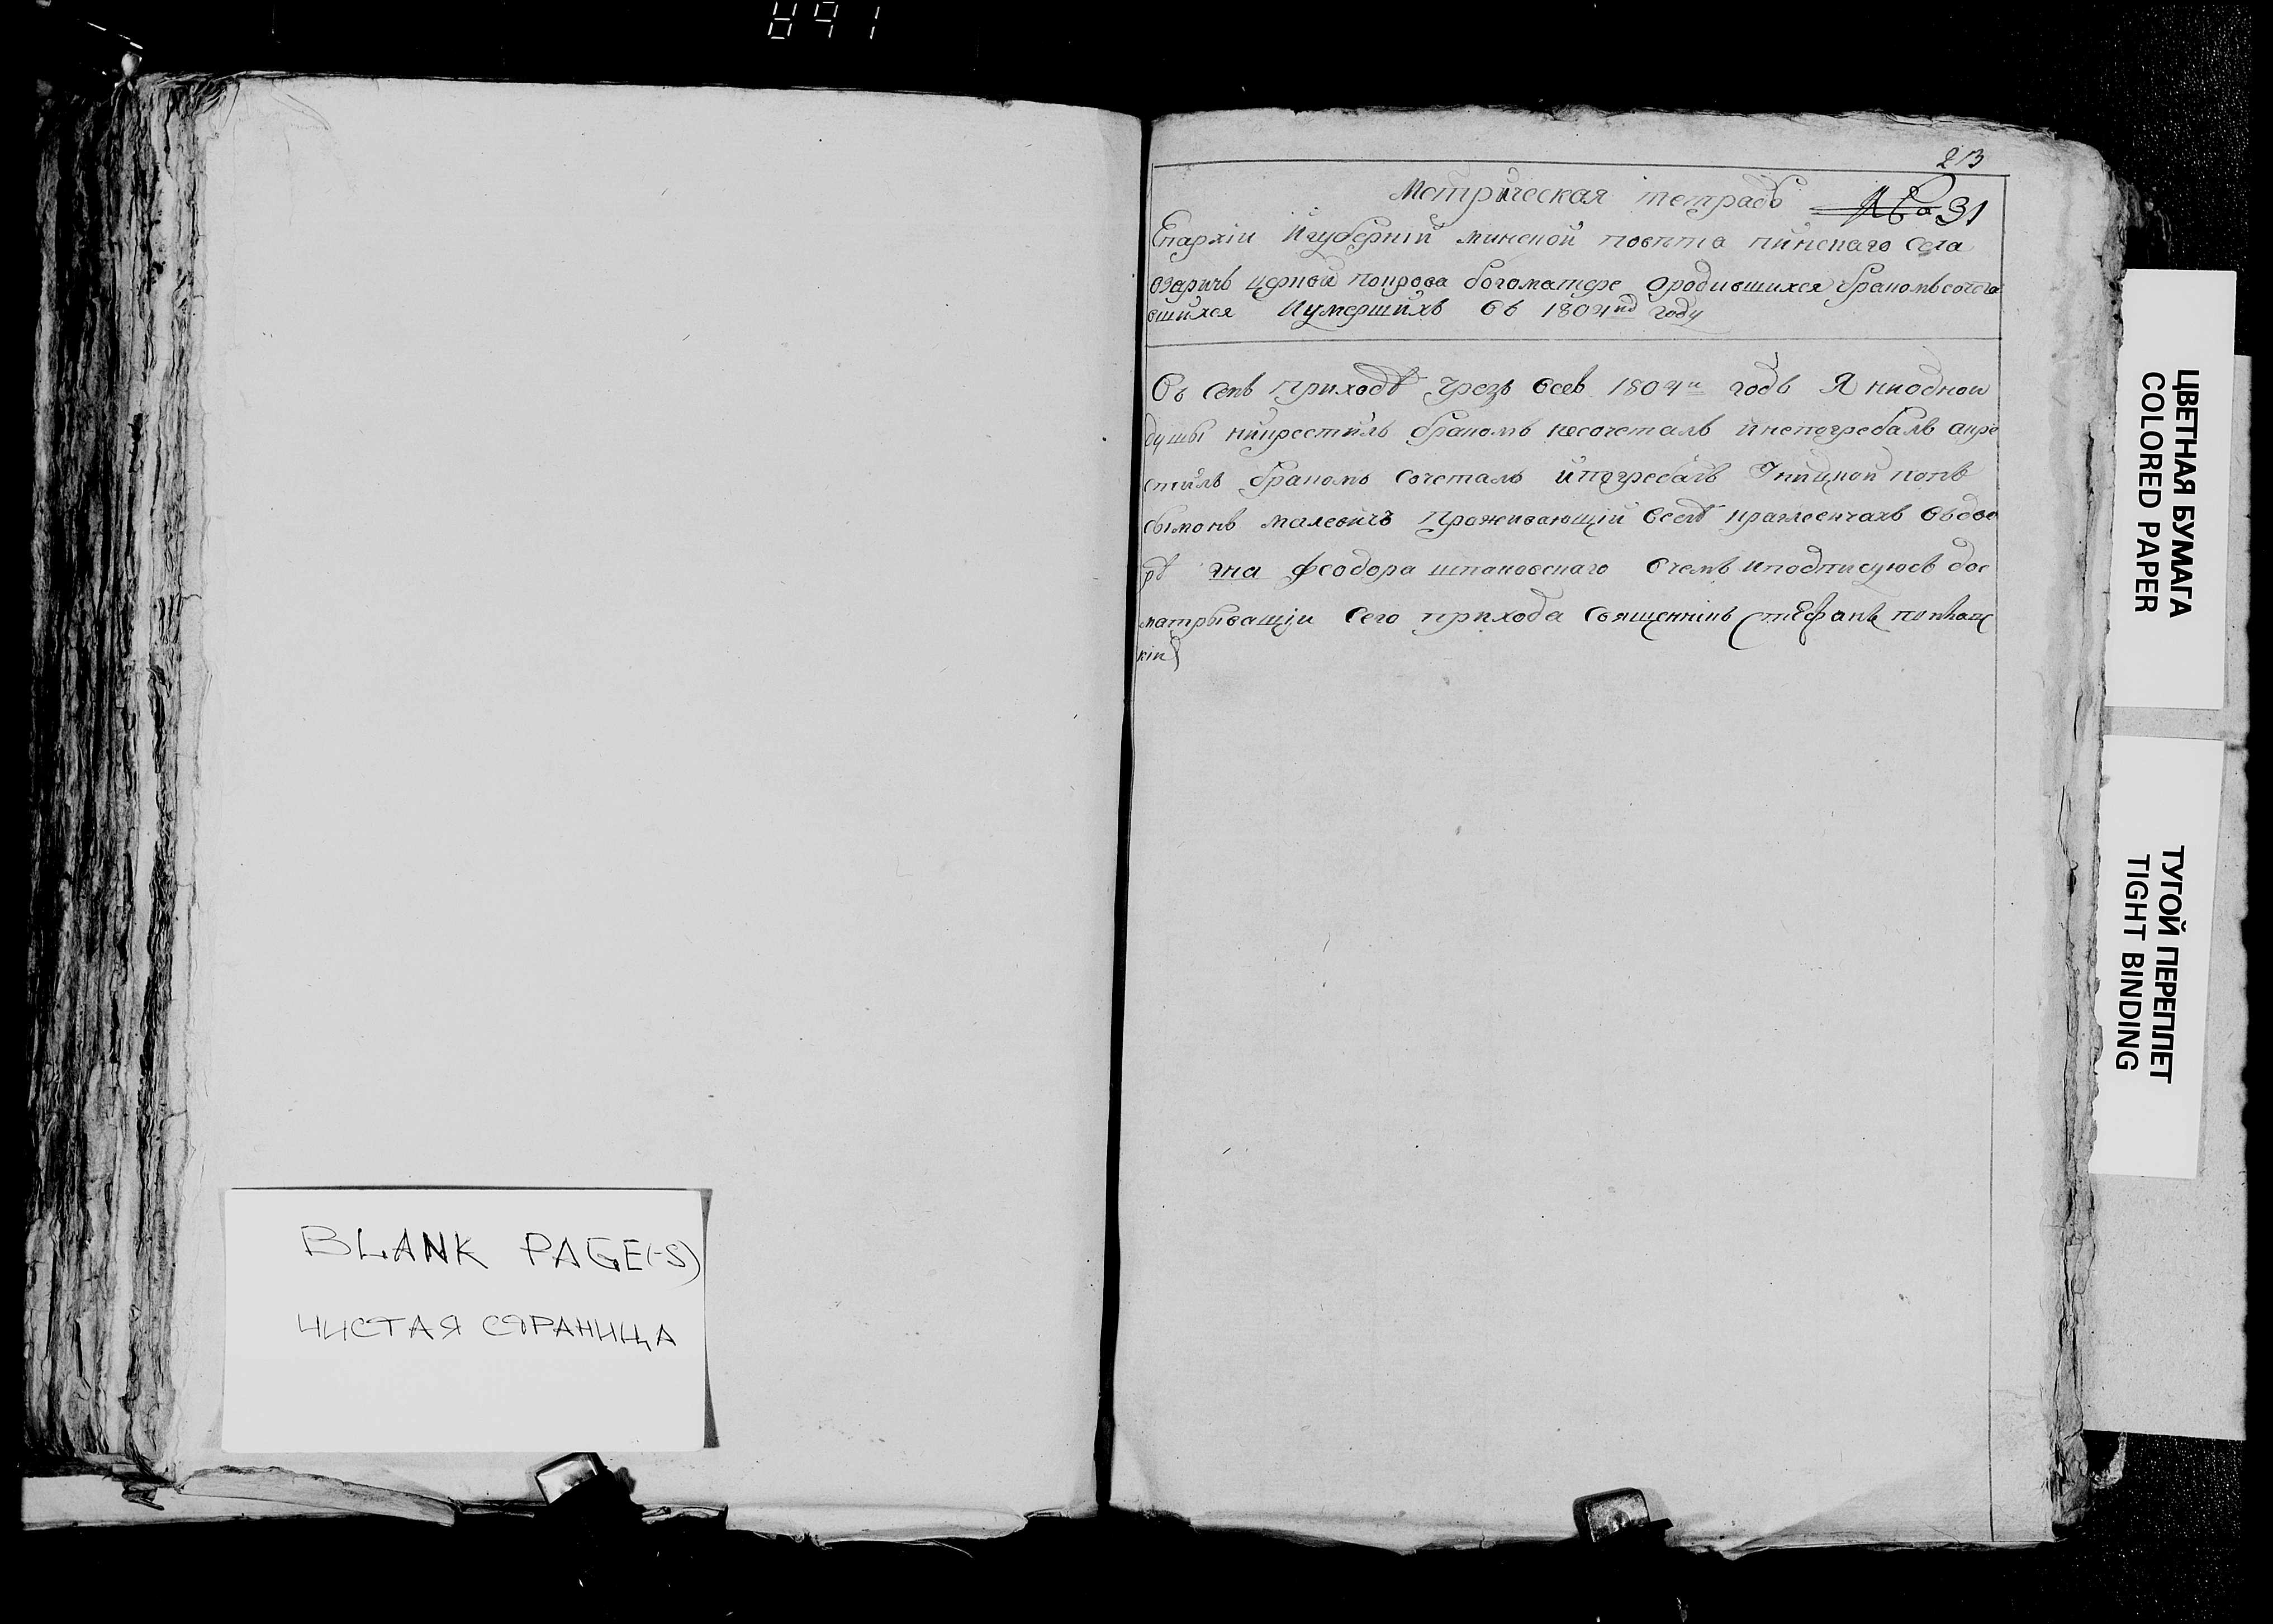 891
BLANK PAGE(-S)
ЧИСТАЯ СТРАНИЦА
213
Метрическая тетрадь № 31
Епархіи Игуберніи минской повѣта пинскаго Села
Озаричъ церкви покрова богоматере ородившихся бракомъсочета
вшихся Иумершихъ Въ 1804 году
Въ семъ приходѣ чрезъ весь 1804 годъ Я ниодной
душы никрестилъ бракомъ несочеталъ инепогребалъ акре
стилъ бракомъ сочеталъ ипогребалъ Уницкой попъ
сымонъ малевичъ Проживающій Вселѣ Вдво
рѣ пна феодора шпаковскаго Вчемъ иподписуюсь дос
матрыващіи Сего прихода Священникъ Стефанъ
кіи
ЦВЕТНАЯ БУМАГА
COLORED PAPER
ТУГОЙ ПЕРЕПЛЕТ
TIGHT BINDING